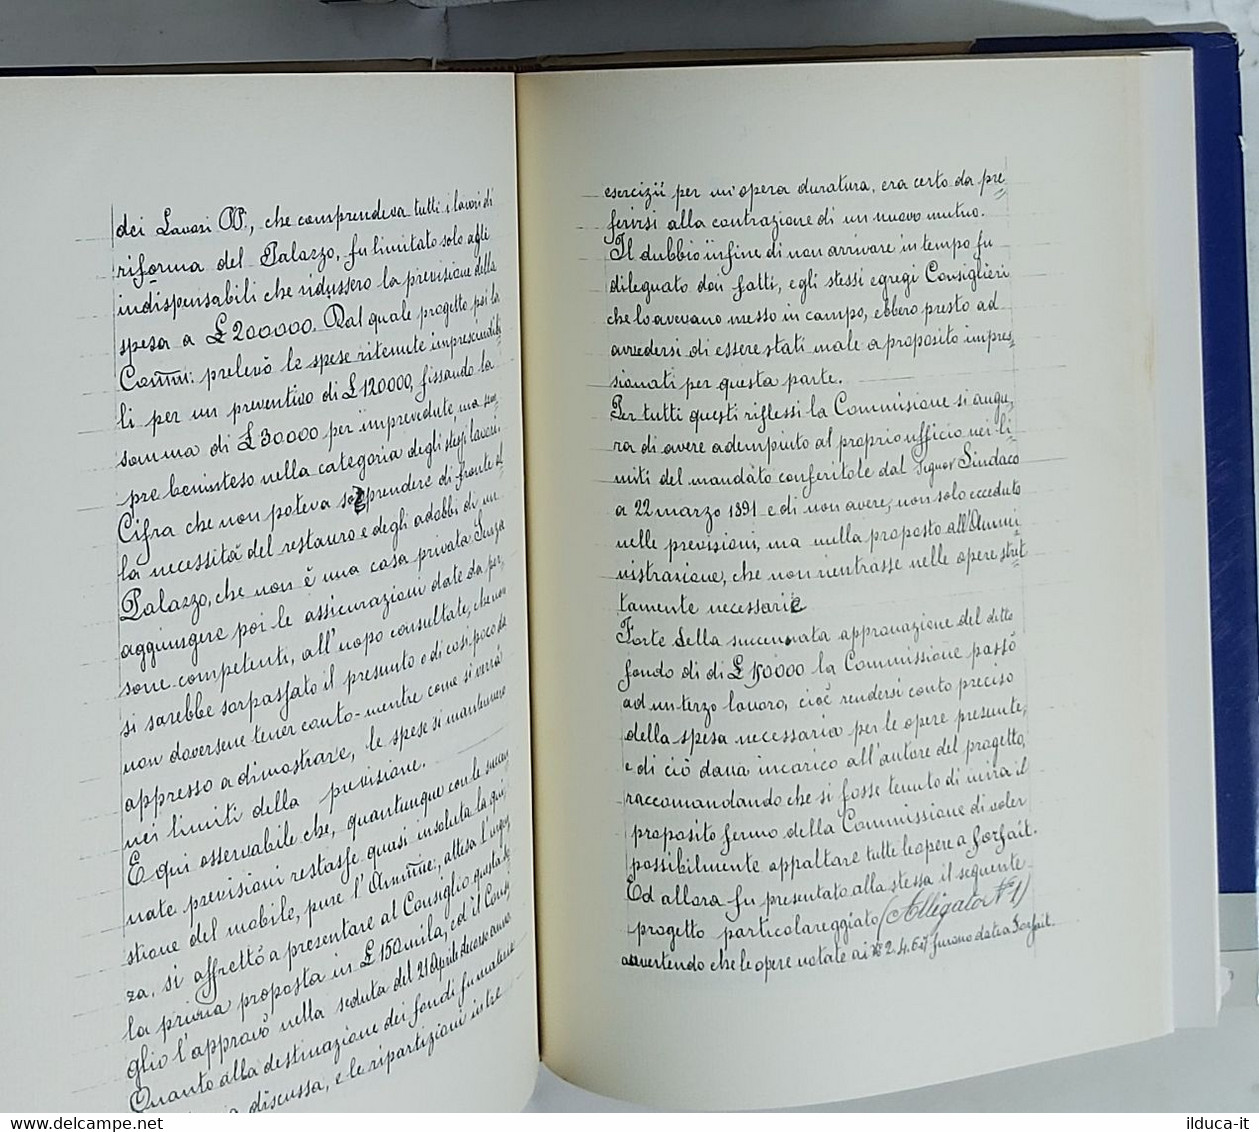 dei Lavori PP., che comprendeva tutti i lavori di
riforma del Palazzo, fu limitato solo agli
indispensabili che ridussero la previsione della
spesa a £ 200000. Dal quale progetto poi la
Comm: prelevò le spese ritenute imprescindibi
li per un preventivo di £ 120000, fissando la
somma di £ 30.000 per imprevedute ma sem
pre beninteso nella categoria degli stessi lavori.
Cifra che non poteva sorprendere di fronte al
la necessità del restauro e degli adobbi di un
Palazzo, che non è una casa privata Senza
aggiungere poi le assicurazioni date da per,
sone competenti, all'uopo consultate, che non
si sarebbe sorpassato il presunto e di così poco da
non doversene tener conto - mentre come si verrà
appresso a dimostrare, le spese si mantennero
nei limiti della previsione.
E qui osservabile che, quantunque con le accen
nate previsioni restasse quasi insoluta la qui,
stione del mobile, pure l'Ammne:, attesa l'urgen
za, si affrettò a presentare al Consiglio questa
la prima proposta in £ 150 mila, ed il Consi
glio l'approvò nella seduta del 21 Aprile decorso anno.
Quanto alla destinazione dei fondi fu matura
discussa, e le ripartizioni in tre
esercizii per un'opera duratura, era certo da pre
ferirsi alla contrazione di un nuovo mutuo.
Il dubbio infine di non arrivare in tempo fu
dileguato dai fatti, e gli stessi egregi Consiglieri
che lo avevano messo in campo, ebbero presto ad
avvedersi di essere stati male a proposito impres
sionati per questa parte.
Per tutti questi riflessi la Commissione si augu,
ra di avere adempiuto al proprio ufficio nei li
miti del mandato conferitole dal Signor Sindaco
a 22 marzo 1891 e di non avere, non solo ecceduto
nelle previsioni, ma nulla proposto all'Ammi
nistrazione, che non rientrasse nelle opere stret
tamente necessarie
Forte della succennata approvazione del ditto
fondo di di £ 150000 la Commissione passò
ad un terzo lavoro, cioè rendersi conto preciso
della spesa necessaria per le opere presunte,
e di ciò dava incarico all'autore del progetto,
raccomandando che si fosse tenuto di mira il
proposito fermo della Commissione di voler
possibilmente appaltare tutte le opere a forfait.
Ed allora fu presentato alla stessa il seguente
progetto particolareggiato (Allegato N° 1)
avvertendo che le opere notate ai N° 2. 4. 6 e 7 furono date a forfait.
ilduca-it